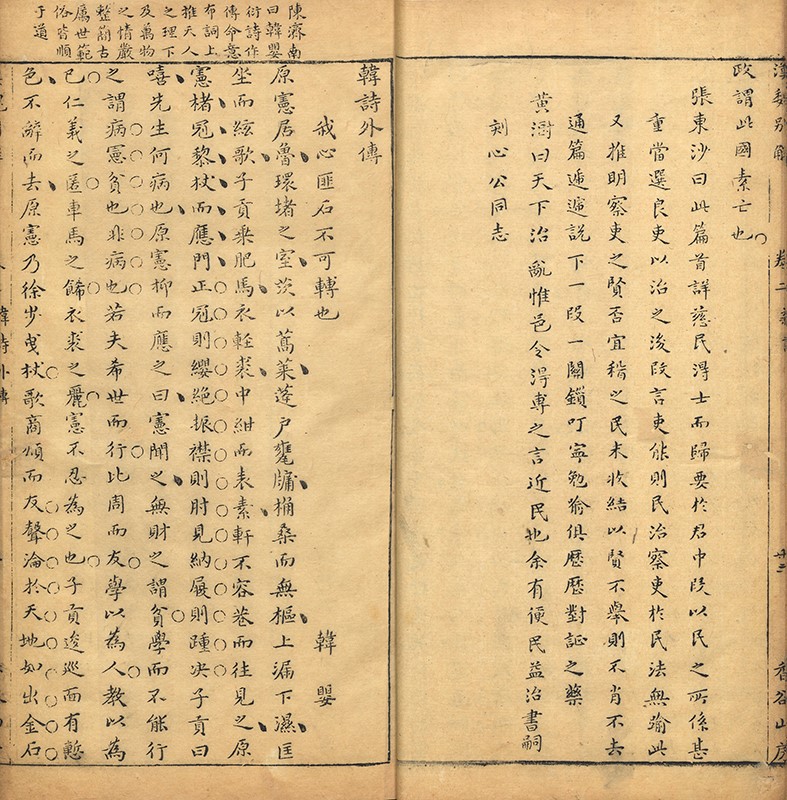 政謂此國素亡也
張東沙曰此篇首詳慈民得士而歸要於君中段以民之所係甚
重當選良吏以治之後段言吏能則民治察吏於民法無踰此
又推明察吏之賢否宜稽之民末收結以賢不舉則不肖不去
通篇遞遞說下一段一關鎖叮寧勉俞俱歷歷對証之藥
黃澍曰天下治亂惟邑令得專之言近民也余有便民益治書嗣
刻心公同志
陳濟南
曰韓嬰
衍詩作
傳命意
布詞上
推天人
之理下
及萬物
之情嚴
整簡古
屬世範
俗皆順
于道
韓詩外傳
我心匪石不可轉也 韓嬰
原憲居魯環堵之室茨以蒿萊蓬戶甕牖桷桑而無樞上漏下濕匡
坐而絃歌子貢乘肥馬衣輕裘中紺而表素軒不容巷而往見之原
憲楮冠黎杖而應門正冠則纓絕振襟則肘見納屨則踵決子貢曰
嘻先生何病也原憲抑而應之曰憲聞之無財之謂貧學而不能行
之謂病憲貧也非病也若夫希世而行比周而友學以為人教以為
已仁義之匿車馬之飾衣裘之麗憲不忍為之也子貢逡巡面有慙
色不辭而去原憲乃徐步曳杖歌商頌而反聲淪於天地如出金石
卷二
韓詩外傳
廿三
香谷山房